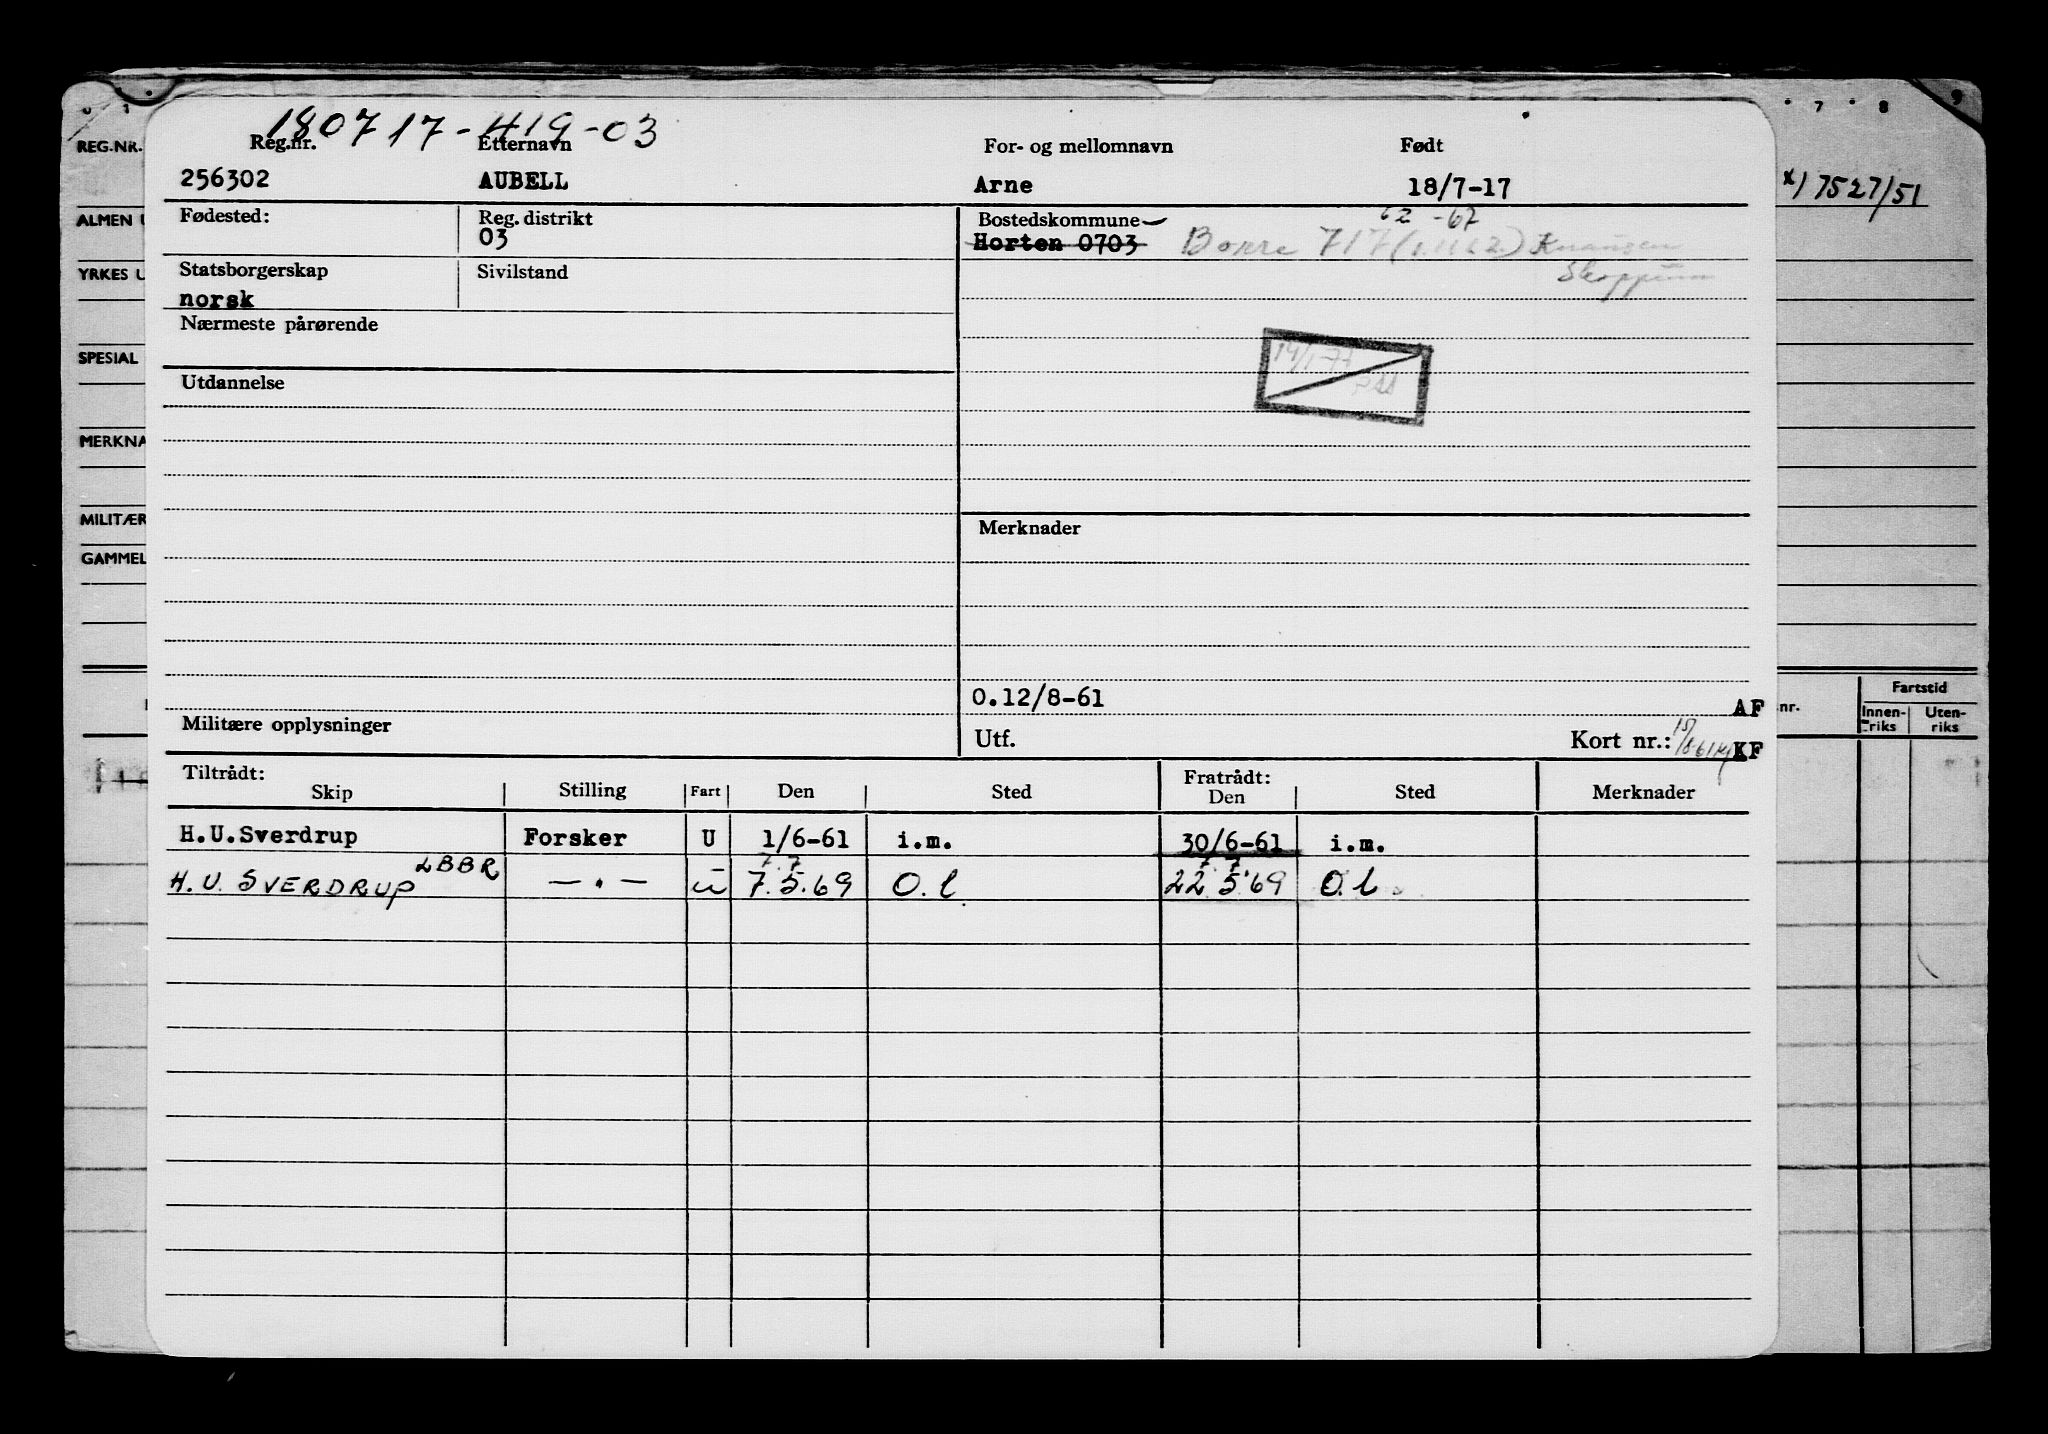 180717-419-03
Reg.nr. Etternavn For- og mellomnavn Født
256302 AUBELL Arne 18/7-17
REG.NR.
x) 7527/51
Fødested: Reg. distrikt Bostedskommune 62 -67
03 Horten 0703 Borre 717 Knausen
Skoppum
ALMEN U
YRKES U
Statsborgerskap Sivilstand
norsk
Nærmeste pårørende
SPESIAL
14/1-77
Utdannelse
MERKNA
MILITÆR
Merknader
GAMMEL
0.12/8-61
AF
Militære opplysninger Utf. Kort nr.: KF
nr. Fartstid
Innen-riks Uten-riks
Tiltrådt: Fratrådt:
Skip Stilling Fart Den Sted Den Sted Merknader
H.U.Sverdrup Forsker U 1/6-61 i.m. 30/6-61 i.m.
LBBR 7 7 7 7
H.U. SVERDRUP — " — u 7.5.69 O.l 22.5.69 O.l
7 8 9